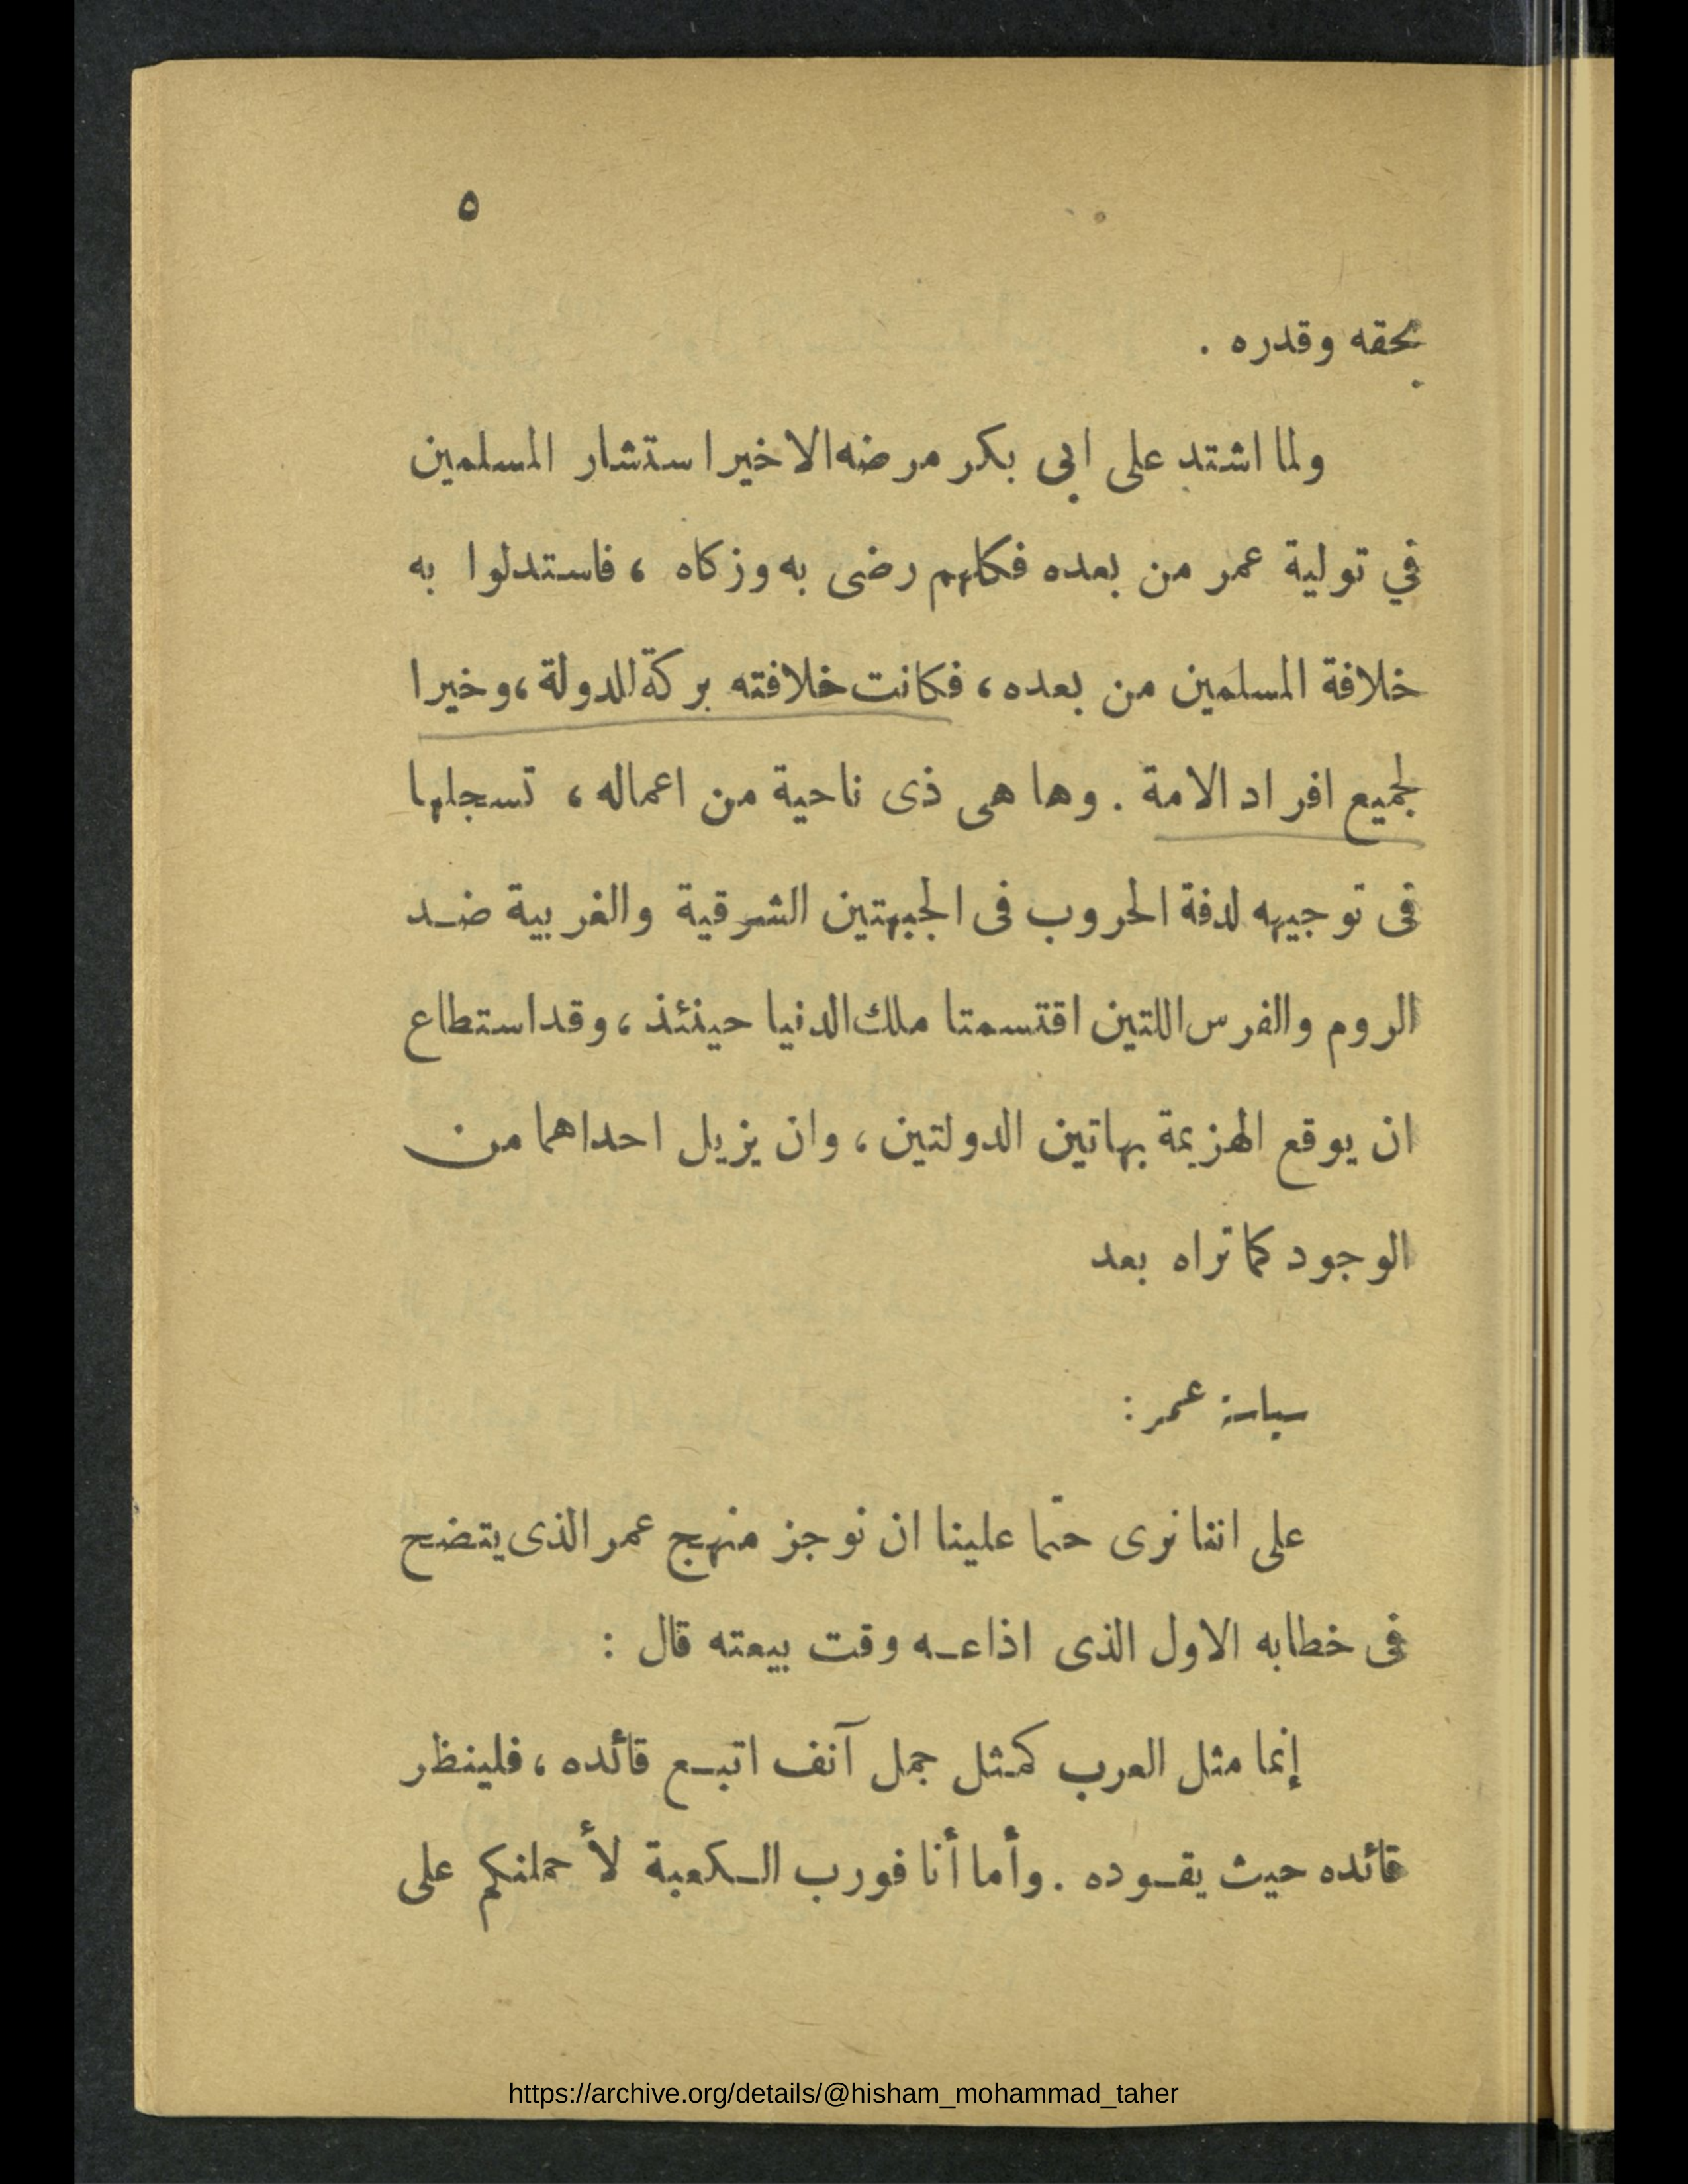 ٥
بحقه وقدره .
ولما اشتد على ابى بكر مرضه الاخير استشار المسلمين
في تولية عمر من بعده فكلهم رضى به وزكاه ، فاستدلوا به
خلافة المسلمين من بعده ، فكانت خلافته بركة للدولة ، وخيرا
لجميع افراد الامة . وها هى ذى ناحية من اعماله ، تسجلها
فى توجيهه لدفة الحروب فى الجبهتين الشرقية والغربية ضد
الروم والفرس اللتين اقتسمتا ملك الدنيا حينئذ ، وقد استطاع
ان يوقع الهزيمة بهاتين الدولتين ، وان يزيل احداهما من
الوجود كما تراه بعد
سياسة عمر :
على اننا نرى حتما علينا ان نوجز منهج عمر الذى يتضح
فى خطابه الاول الذى اذاعه وقت بيعته قال :
إنما مثل العرب كمثل جمل آنف اتبع قائده ، فلينظر
قائده حيث يقوده . وأما أنا فورب الكعبة لأحملنكم على
https://archive.org/details/@hisham_mohammad_taher